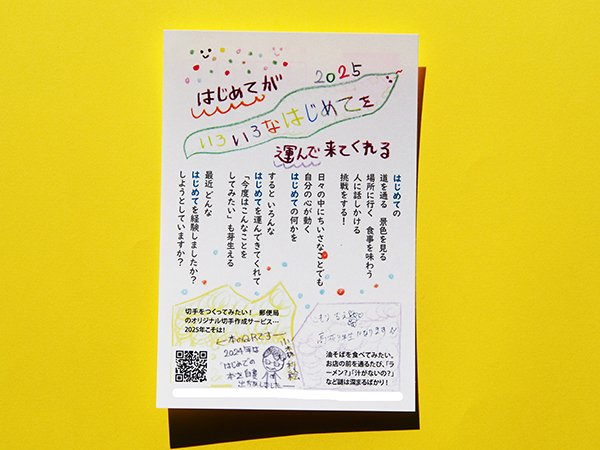 2025
はじめてが
いろいろなはじめてを
運んで来てくれる
はじめての
道を通る 景色を見る
場所に行く 食事を味わう
人に話しかける
挑戦をする！
日々の中にちいさなことでも
自分の心が動く
はじめての何かを
すると いろんな
はじめてを運んできてくれて
「今度はこんなことを
してみたい」も芽生える
最近 どんな
はじめてを経験しましたか？
しようとしていますか？
切手をつくってみたい！ 郵便局
のオリジナル切手作成サービス…
2025年こそは！
本のQRです
2024年は
はじめての
出版しました
油そばを食べてみたい。
お店の前を通るたび、「ラ
ーメン？」「汁がないの？」
など謎は深まるばかり！